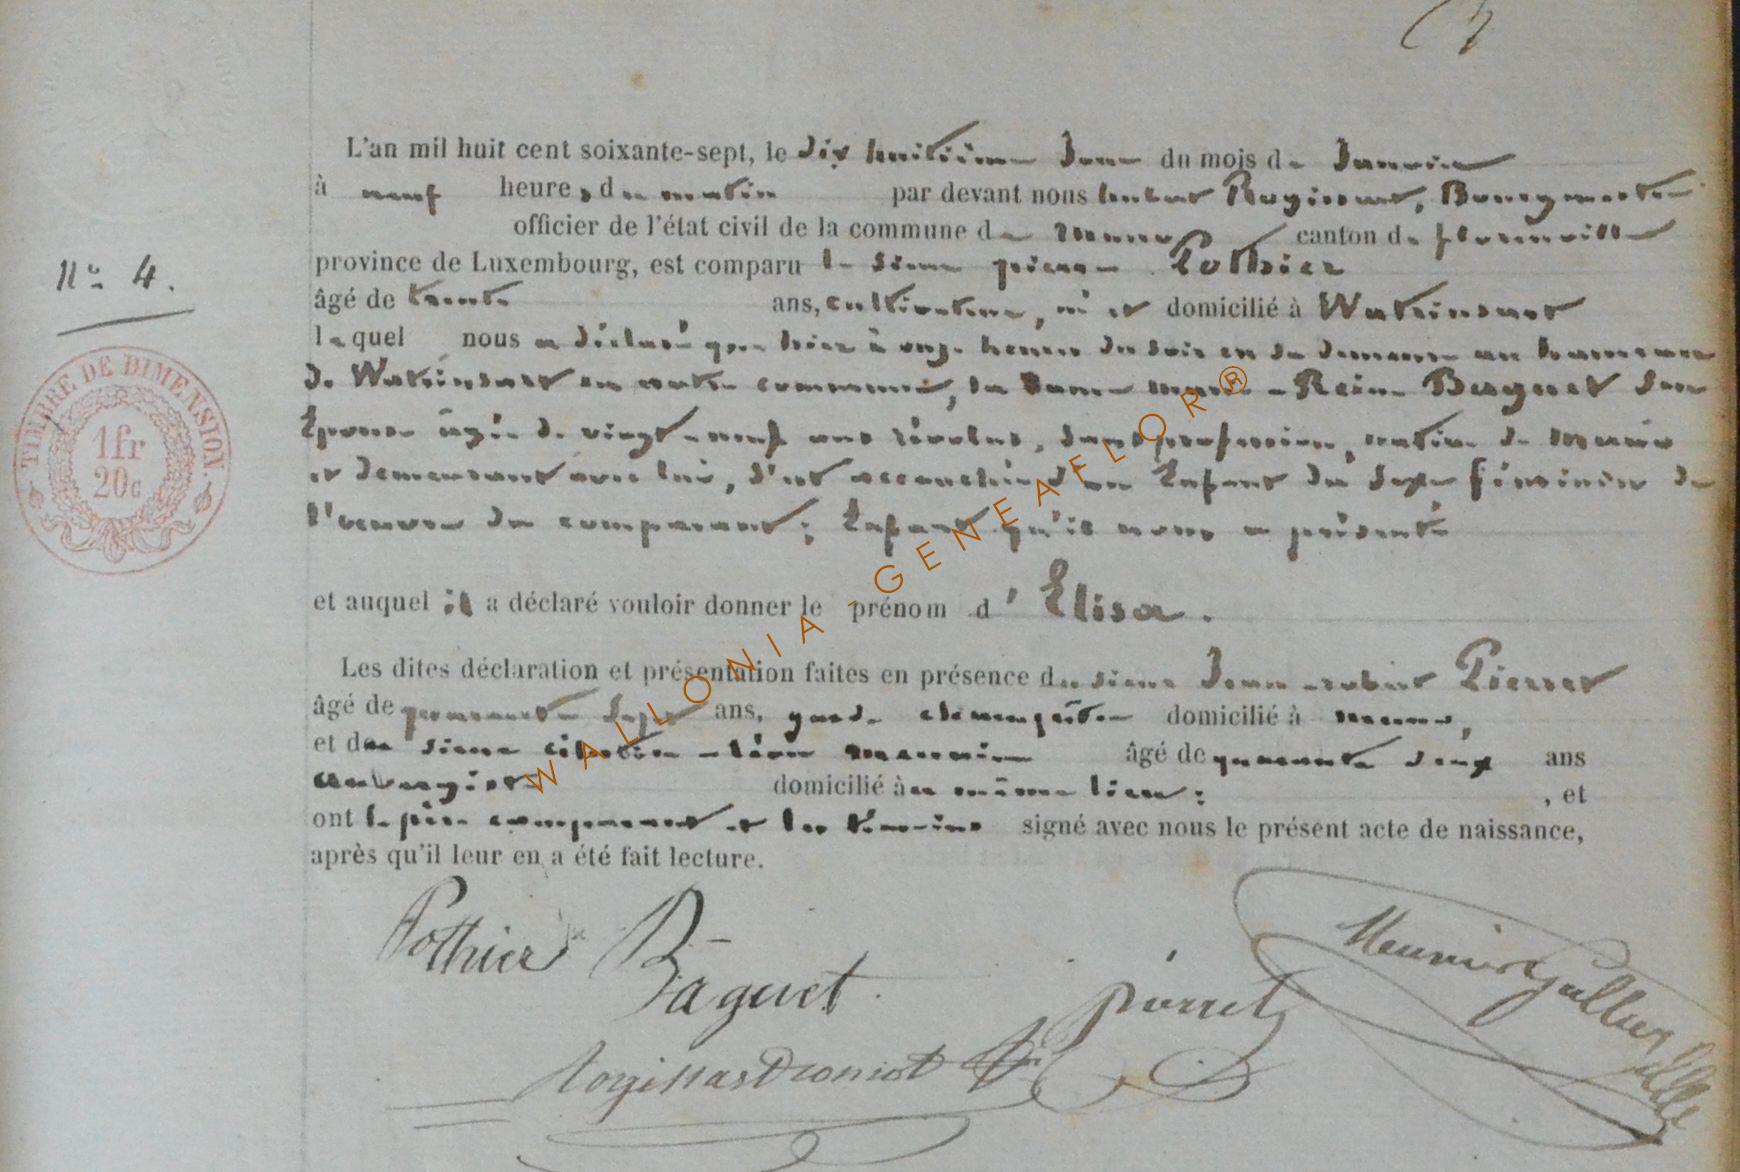 L'an mil huit cent soixante-sept, le dix huitième Jour du mois de Janvier
à neuf heures du matin par devant nous hubert Rogissart, Bourgmestre
officier de l'état civil de la commune de canton de florenville
province de Luxembourg, est comparu le sieur pierre Pothier
N° 4.
âgé de trente ans, cultivateur, né et domicilié à Watrinsart
lequel nous a déclaré que hier à onze heures du soir en sa demeure au hameau
de Watrinsart en notre commune, la Dame marie-Reine Baguet son
Epouse âgée de vingt-neuf ans révolus, sans profession, native de
et demeurant avec lui, s'est accouchée d'un Enfant du sexe féminin de
l'oeuvre du comparant; Enfant qu'il nous a présenté
TIMBRE DE DIMENSION.
1fr
20c
et auquel il a déclaré vouloir donner le prénom d'Elisa.
Les dites déclaration et présentation faites en présence du sieur Jean-hubert Pierret
âgé de quarante sept ans, garde champêtre domicilié à
et du sieur -léon meunier âgé de quarante deux ans
aubergiste domicilié à au même lieu; , et
ont le père comparant et les témoins signé avec nous le présent acte de naissance,
après qu'il leur en a été fait lecture.
Pothier Baguet
Pierret
Meunier
WALLONIA - GENEAFLOR®